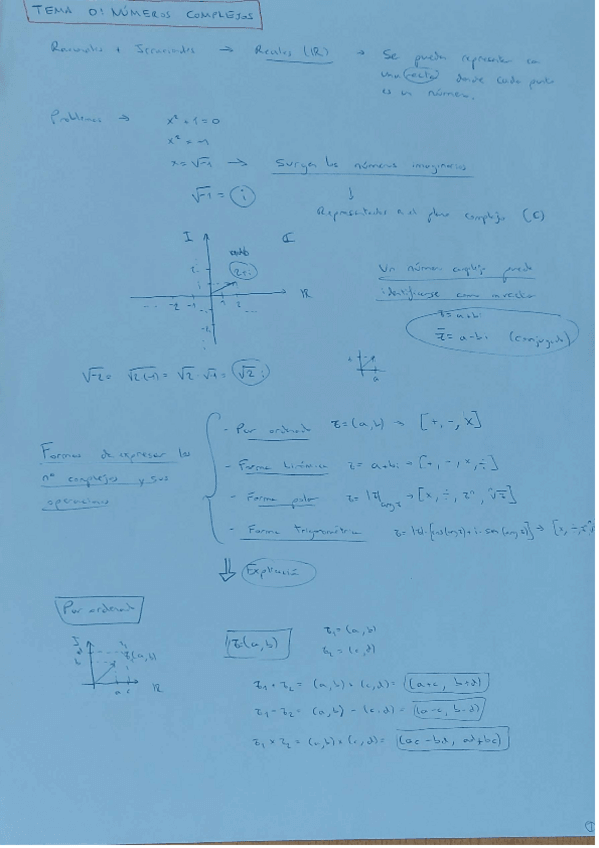 TEMA 0: NÚMEROS COMPLEJOS
Racionales + Irracionales → Reales (IR) → Se pueden representar en
una recta donde cada punto
es un número.
Problemas → x² + 1 = 0
x² = -1
x = √-1 → Surgen los números imaginarios
√-1 = i
Representados en el plano complejo (C)
I C
2+i
-2 -1 1 2 IR
Un número complejo puede
identificarse como un vector
z = a+bi
z̄ = a-bi (conjugado)
√-2 = √2(-1) = √2 √-1 = √2 i
a
Formas de expresar los
nº complejos y sus
operaciones
- Par ordenado z = (a,b) → [+, -, x]
- Forma binómica z = a+bi → [+, -, x, ÷]
- Forma polar z = |z| arg z → [x, ÷, zⁿ, ⁿ√z]
- Forma trigonométrica z = |z|·[cos(arg z) + i·sen(arg z)] → [x, ÷, zⁿ
⇓ Explicación
Par ordenado
z(a,b)
z₁ = (a,b)
z₂ = (c,d)
I
d
b
z(a,b)
a c IR
z₁ + z₂ = (a,b) + (c,d) = (a+c, b+d)
z₁ - z₂ = (a,b) - (c,d) = (a-c, b-d)
z₁ x z₂ = (a,b) x (c,d) = (ac-bd, ad+bc)
1